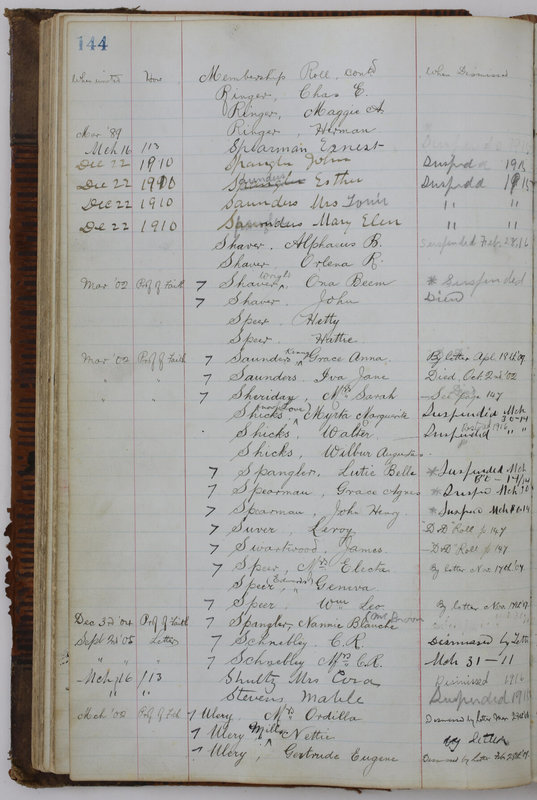 144
When united How Membership Roll, cont'd When Dismissed
Ringer, Chas E.
Ringer, Maggie A
Mar '89 Ringer, Herman
Mch 16 /13 Spearman Ernest
Dec 22 1910 Spangler John Suspedd 1915
Dec 22 1910 Saunders Esther Suspedd 1915
Dec 22 1910 Saunders Mrs " "
Dec 22 1910 Saunders Mary Elen " "
Shaver, Alphaeus B. Suspended Feb. 28, 16
Shaver, Orlena R.
Mar '02 Prof of Faith 7 Shaver, Wright Ona Beem * Suspended
7 Shaver, John Died
Speer, Hetty
Speer, Hattie
Mar '02 Prof of Faith 7 Saunders Grace Anna By letter Apl. 18th '09
" " 7 Saunders, Iva Jane Died, Oct 2nd '02
" " 7 Sheriday, Mrs Sarah — See Page 147
Shicks, Myrta Marguerite Suspended Mch 30-14
Shicks, Walter Suspended " "
Shicks, Wilbur Augustus
7 Spangler, Lutie Belle * Suspended Mch
7 Spearman, Grace Agnes * Suspe Mch 30
7 Spearman, John Henry * Suspen Mch 30-14
7 Suver, Leroy "D.D." Roll p 147
7 Swartwood, James — "D.D." Roll p 147
7 Speer, Mrs Electa By letter Nov. 17th '09
Speer, (Edwards) " Geneva
7 Speer Wm Leo By letter Nov. 17th '09
Dec 3d 04 Prof of Faith 7 Spangler, Nannie Blanche
Sept 3rd '05 Letter 7 Schnebley, C.R. Dismissed by Letter
" " " 7 Schnebley Mrs C.R. Mch 31—11
Mch 16 /13 Shultz Mrs Cora Dismissed 1916
" " Stevens Mable Suspended 1915
Mch '02 Prof of Faith 7 Ulery, Mrs Ordilla Dismissed by letter
7 Ulery Nettie by letter
7 Ulery, Gertrude Eugene Dismissed by Letter Feb. 28th '09